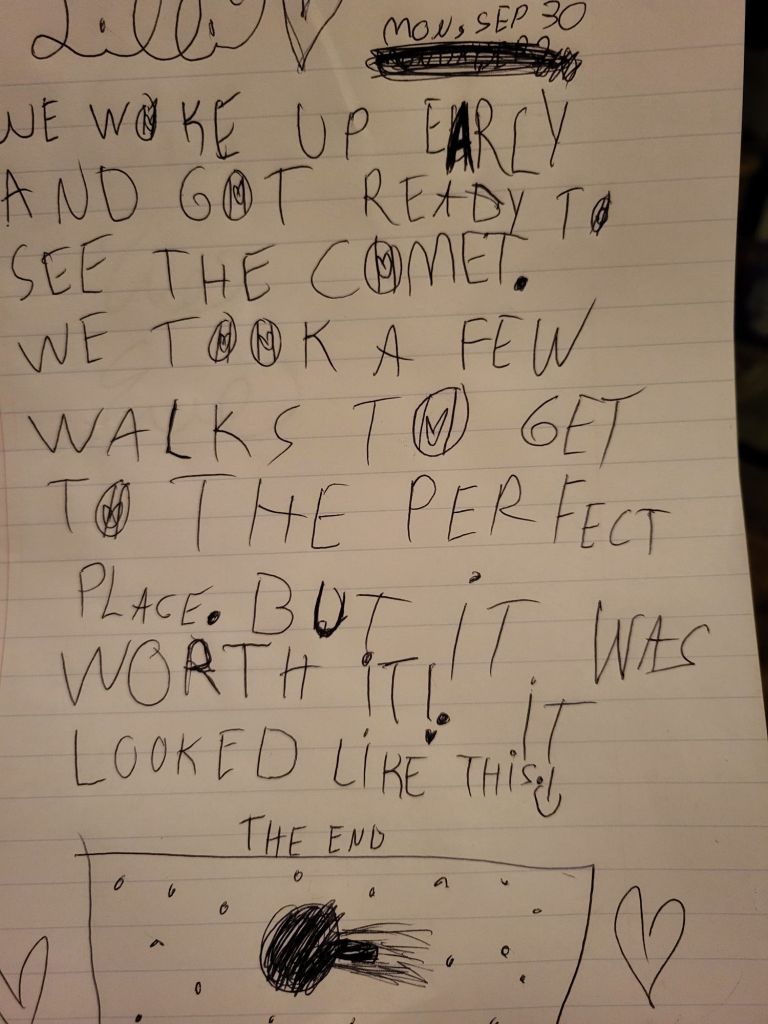 Lilli MON, SEP 30
WE WOKE UP EARLY
AND GOT READY TO
SEE THE COMET.
WE TOOK A FEW
WALKS TO GET
TO THE PERFECT
PLACE. BUT iT WAS
WORTH iT!. iT
LOOKED LiKE THiS:
THE END